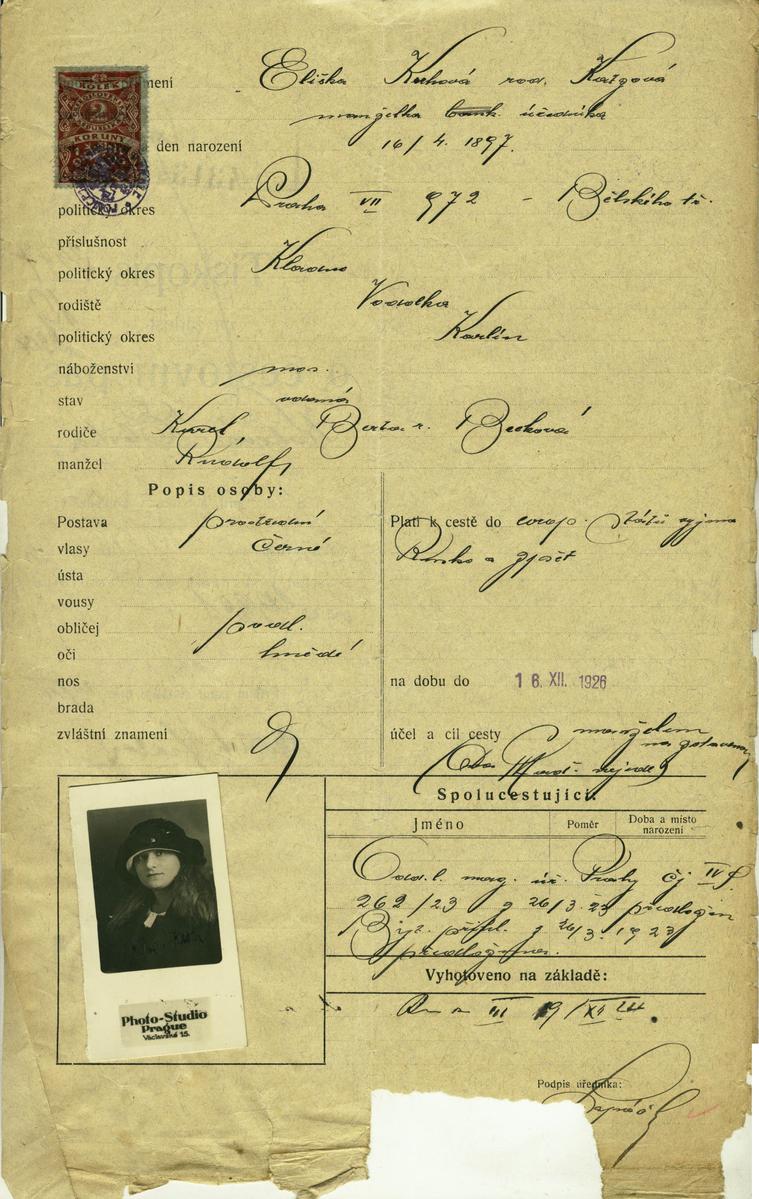 KOLEK
2
KORUNY
mení Eliška Kuhová roz. Katzová
manželka bank. úředníka
den narození 16/4. 1897.
politický okres Praha VII 972 - Bělského tř.
příslušnost
politický okres Kladno
rodiště Vodolka
politický okres Karlín
náboženství mos.
stav vdaná
rodiče Karel Berta r. Becková
manžel Rudolf
Popis osoby:
Postava prostřední
vlasy černé
ústa
vousy
obličej podl.
oči hnědé
nos
brada
zvláštní znamení
Platí k cestě do evrop. států vyjma
Rusko a zpět
na dobu do 16. XII. 1926
účel a cíl cesty s manželem
na zotavenou
Spolucestující:
Jméno Poměr Doba a místo narození
Odd. l. mag. úř. Prahy čj IV
262/23 z 26/3.23 předložen
z 26/3. 1923
předložena.
Vyhotoveno na základě:
III 19/XII 24.
Podpis úředníka:
Photo-Studio
Prague
Václavské 15.